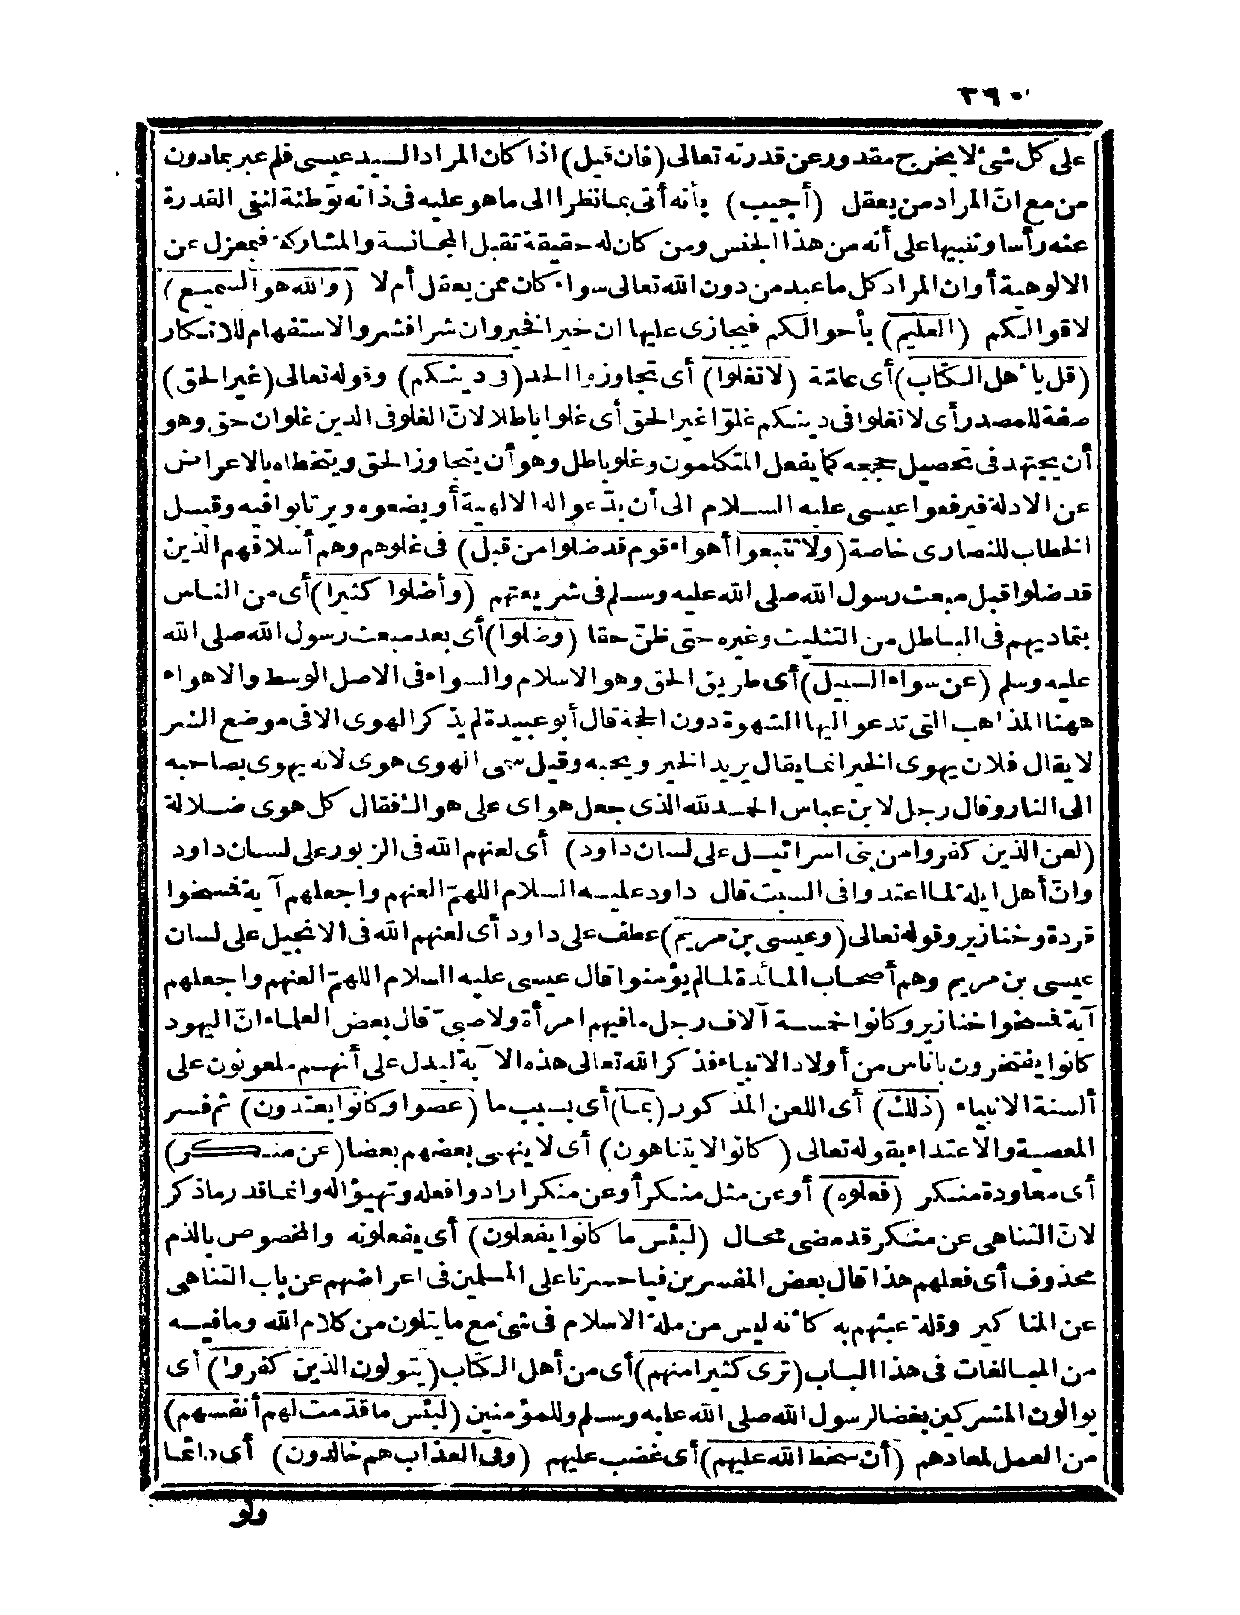 ٣٩٠
على كل شئ لا يخرج مقدور عن قدرته تعالى (فان قيل) اذا كان المراد السيد عيسى فلم عبر بما دون
من مع انّ المراد من يعقل (أجيب) بأنه أتى بما نظرا الى ما هو عليه فى ذاته توطئة لنفى القدرة
عنه رأسا وتنبيها على أنه من هذا الجنس ومن كان له حقيقة تقبل المجانسة والمشاركة فبمعزل عن
الالوهية أوان المراد كل ما عبد من دون الله تعالى سواء كان ممن يعقل أم لا (والله هو السميع)
لاقوالكم (العليم) بأحوالكم فيجازى عليها ان خيرا فخير وان شرا فشر والاستفهام للانكار
(قل يا أهل الكتاب) أى عامّة (لا تغلوا) أى تجاوزوا الحد (فى دينكم) وقوله تعالى (غير الحق)
صفة للمصدر أى لا تغلوا فى دينكم غلوّا غير الحق أى غلوا باطلا لانّ الغلو فى الدين غلوان حق وهو
أن يجتهد فى تحصيل حججه كما يفعل المتكلمون وغلو باطل وهو أن يتجاوز الحق ويتخطاه بالاعراض
عن الادلة فيرفعوا عيسى عليه السلام الى أن يدّعوا له الالهية أو يضعوه ويرتابوا فيه وقيل
الخطاب للنصارى خاصة (ولا تتبعوا أهواء قوم قد ضلوا من قبل) فى غلوهم وهم أسلافهم الذين
قد ضلوا قبل مبعث رسول الله صلى الله عليه وسلم فى شريعتهم (وأضلوا كثيرا) أى من الناس
بتماديهم فى الباطل من التثليث وغيره حتى ظنّ حقا (وضلوا) أى بعد مبعث رسول الله صلى الله
عليه وسلم (عن سواء السبيل) أى طريق الحق وهو الاسلام والسواء فى الاصل الوسط والاهواء
ههنا المذاهب التى تدعو اليها الشهوة دون الحجة قال أبو عبيدة لم يذكر الهوى الا فى موضع الشر
لا يقال فلان يهوى الخير انما يقال يريد الخير ويحبه وقيل سمى الهوى هوى لانه يهوى بصاحبه
الى النار وقال رجل لابن عباس الحمد لله الذى جعل هواى على هوالـ فقال كل هوى ضلالة
(لعن الذين كفروا من بنى اسرائيل على لسان داود) أى لعنهم الله فى الزبور على لسان داود
وانّ أهل ايلة لما اعتدوا فى السبت قال داود عليه السلام اللهمّ العنهم واجعلهم آية فمسخوا
قردة وخنازير وقوله تعالى (وعيسى بن مريم) عطف على داود أى لعنهم الله فى الانجيل على لسان
عيسى بن مريم وهم أصحاب المائدة لما لم يؤمنوا قال عيسى عليه السلام اللهمّ العنهم واجعلهم
آية فمسخوا خنازير وكانوا خمسة آلاف رجل ما فيهم امرأة ولا صبىّ قال بعض العلماء انّ اليهود
كانوا يفتخرون بأناس من أولاد الانبياء فذكر الله تعالى هذه الآية ليدل على أنهم ملعونون على
ألسنة الانبياء (ذلك) أى اللعن المذكور (بما) أى بسبب ما (عصوا وكانوا يعتدون) ثم فسر
المعصية والاعتداء بقوله تعالى (كانوا لا يتناهون) أى لا ينهى بعضهم بعضا (عن منكر)
أى معاودة منكر (فعلوه) أو عن مثل منكر أو عن منكر ارادوا فعله وتهيؤا له وانما قدر ما ذكر
لانّ التناهى عن منكر قد مضى محال (لبئس ما كانوا يفعلون) أى يفعلونه والمخصوص بالذم
محذوف أى فعلهم هذا قال بعض المفسرين فيا حسرتا على المسلمين فى اعراضهم عن باب التناهى
عن المناكير وقلة عبثهم به كأنه ليس من ملة الاسلام فى شئ مع ما يتلون من كلام الله وما فيه
من المبالغات فى هذا الباب (ترى كثيرا منهم) أى من أهل الكتاب (يتولون الذين كفروا) أى
يوالون المشركين بغضا لرسول الله صلى الله عليه وسلم وللمؤمنين (لبئس ما قدّمت لهم أنفسهم)
من العمل لمعادهم (أن سخط الله عليهم) أى غضب عليهم (وفى العذاب هم خالدون) أى دائما
ولو